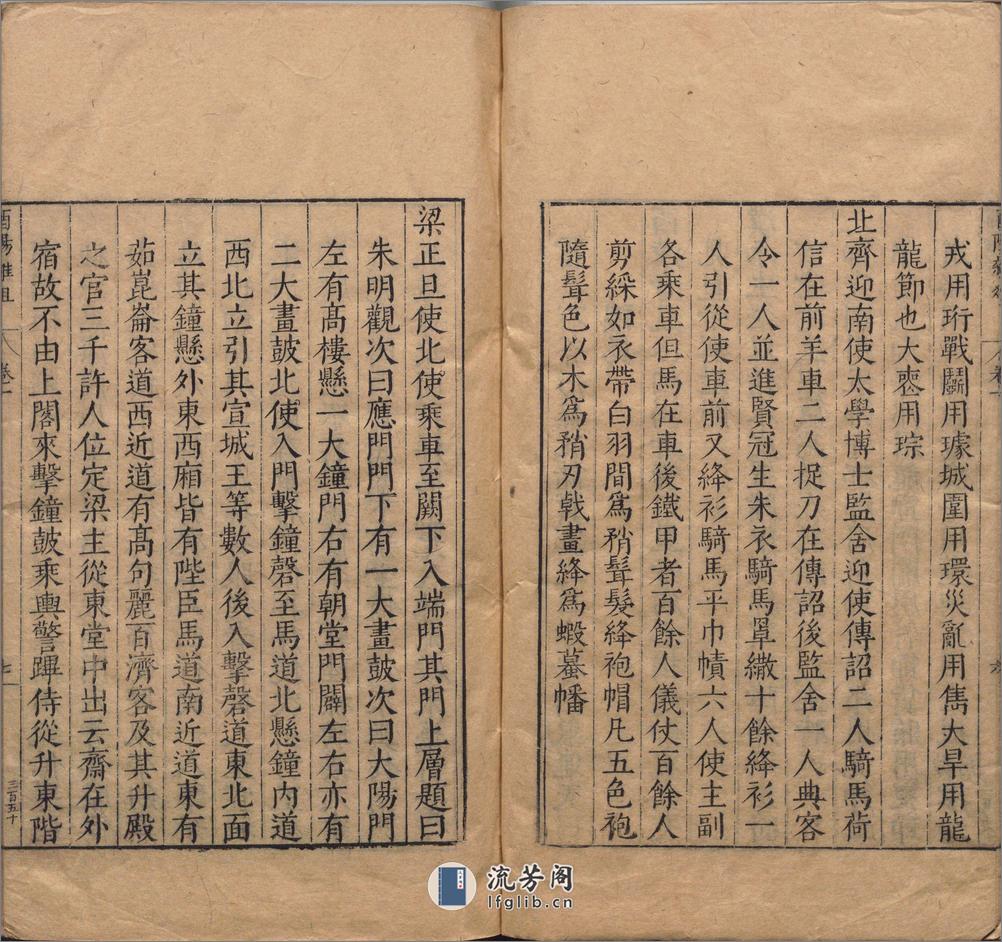 戎用珩戰鬭用璩城圍用環災亂用雋大旱用龍
龍節也大喪用琮
北齊迎南使太學博士監舍迎使傳詔二人騎馬荷
信在前羊車二人捉刀在傳詔後監舍一人典客
令一人並進賢冠生朱衣騎馬罩繖十餘絳衫一
人引從使車前又絳衫騎馬平巾幘六人使主副
各乘車但馬在車後鐵甲者百餘人儀仗百餘人
剪綵如衣帶白羽間爲矟髶髮絳袍帽凡五色袍
隨髶色以木爲矟刃戟畫絳爲蝦蟇幡
梁正旦使北使乘車至闕下入端門其門上層題曰
朱明觀次曰應門門下有一大畫鼓次曰大陽門
左有高樓懸一大鐘門右有朝堂門闢左右亦有
二大畫鼓北使入門擊鐘磬至馬道北懸鐘內道
西北立引其宣城王等數人後入擊磬道東北面
立其鐘懸外東西廂皆有陛臣馬道南近道東有
茹崑崙客道西近道有高句麗百濟客及其升殿
之官三千許人位定梁主從東堂中出云齋在外
宿故不由上閣來擊鐘鼓乘輿警蹕侍從升東階
酉陽雜俎 卷一 七 三百五十
流芳阁
lfglib.cn